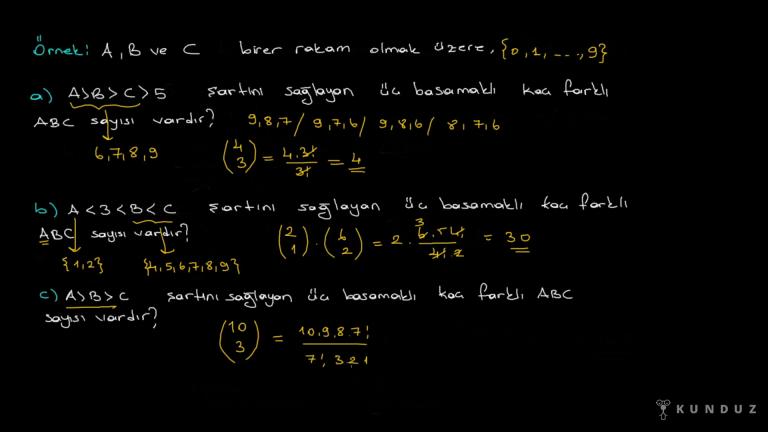 Örnek: A, B ve C birer rakam olmak üzere, {0, 1, ..., 9}
a) A > B > C > 5 şartını sağlayan üç basamaklı kaç farklı
ABC sayısı vardır? 9,8,7 / 9,7,6 / 9,8,6 / 8,7,6
6,7,8,9 (4 3) = 4.3! / 3! = 4
b) A < 3 < B < C şartını sağlayan üç basamaklı kaç farklı
ABC sayısı vardır? (2 1) . (6 2) = 2 . 6.5.4! / 4!.2 3 = 30
{1,2} {4,5,6,7,8,9}
c) A > B > C şartını sağlayan üç basamaklı kaç farklı ABC
sayısı vardır?
(10 3) = 10.9.8.7! / 7!.3.2.1
KUNDUZ